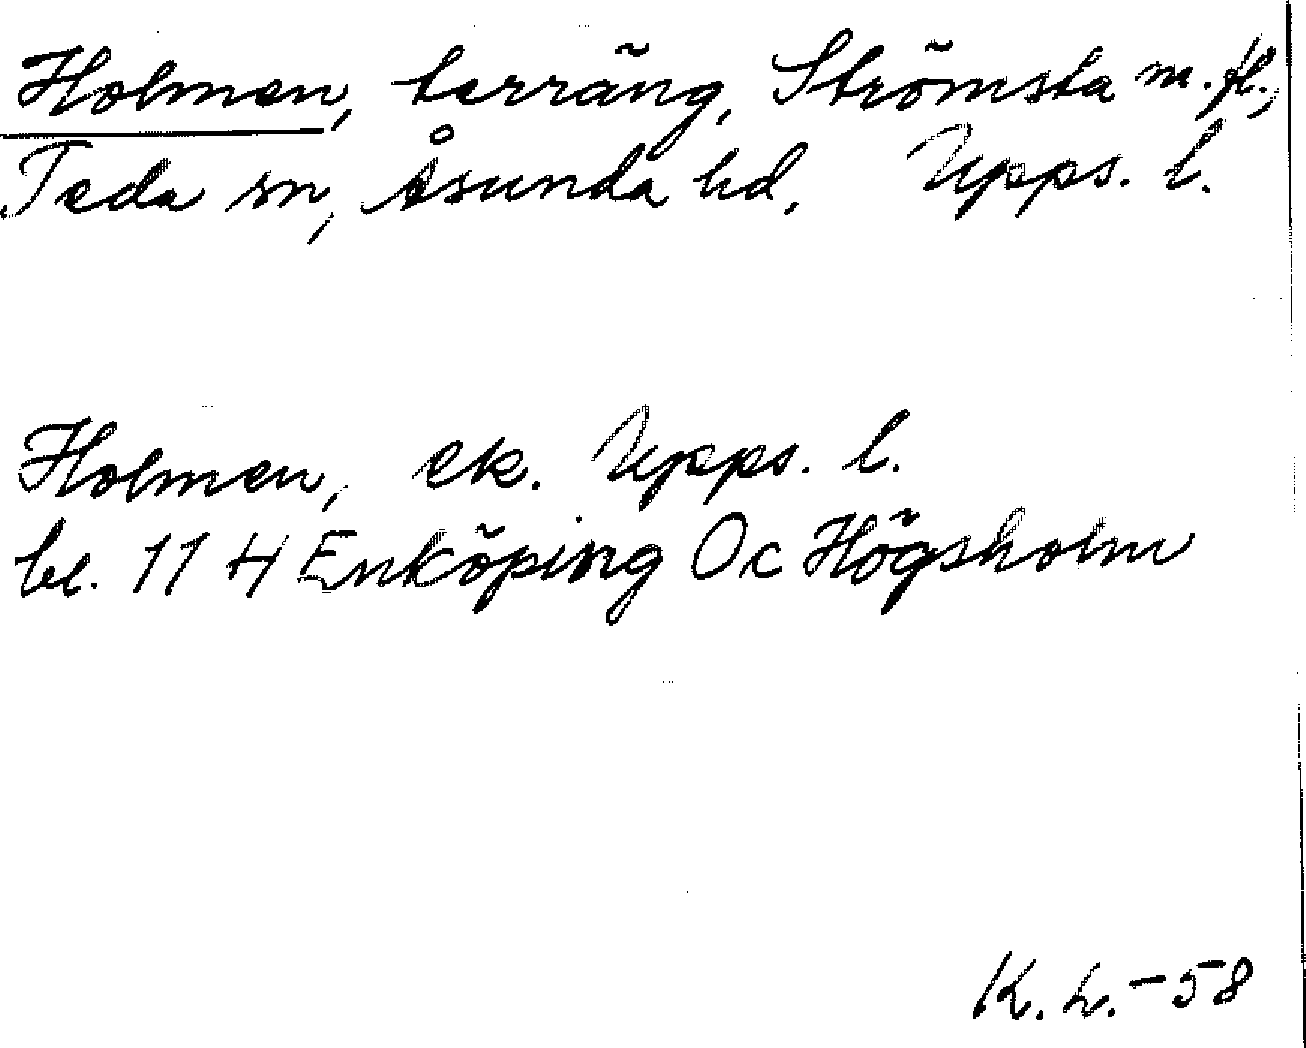 Holmen, terräng, Strömsta m.fl.,
Teda sn, Åsunda hd, Upps. l.
Holmen, ek. Upps. l.
bl. 11 H Enköping Oc Högsholm
K. L. -58